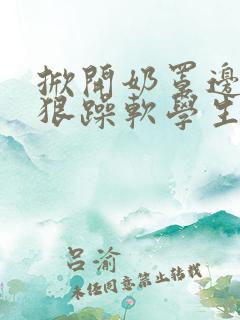 掀開奶罩邊
狠躁軟學生
呂渝
未任同意禁止转载